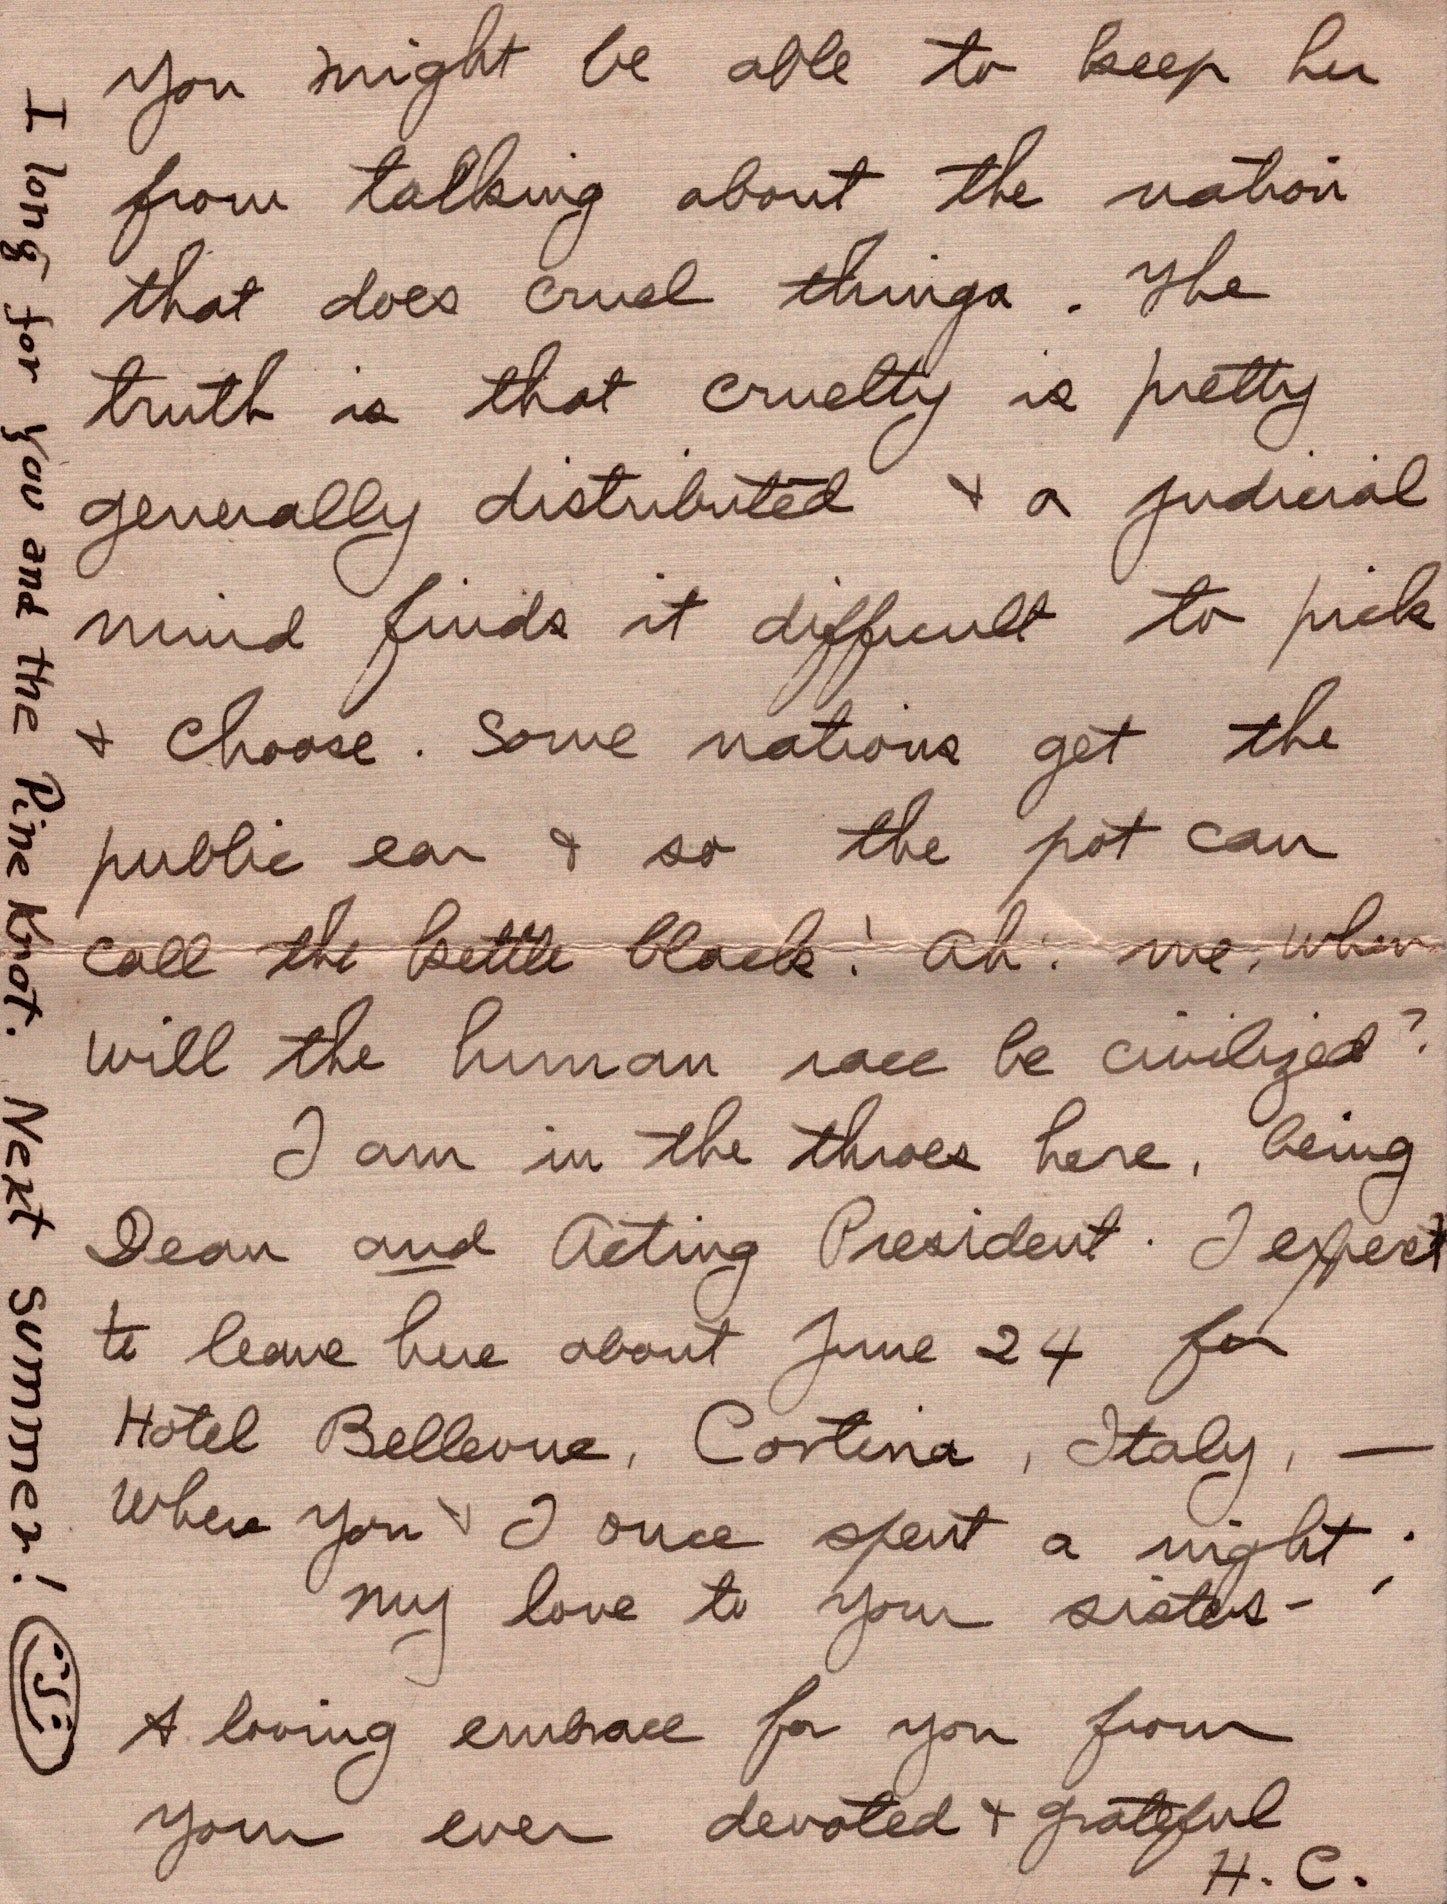 you might be able to keep her
from talking about the nation
that does cruel things. The
truth is that cruelty is pretty
generally distributed & a judicial
mind finds it difficult to pick
& choose. Some nations get the
public ear & so the pot can
call the kettle black! Ah! me, when
will the human race be civilized?
I am in the throes here, being
Dean and Acting President. I expect
to leave here about June 24 for
Hotel Bellevue, Cortina, Italy, —
where you & I once spent a night;
My love to your sisters-
A loving embrace for you from
your ever devoted & grateful
H. C.
I long for you and the Pine Knot. Next Summer!